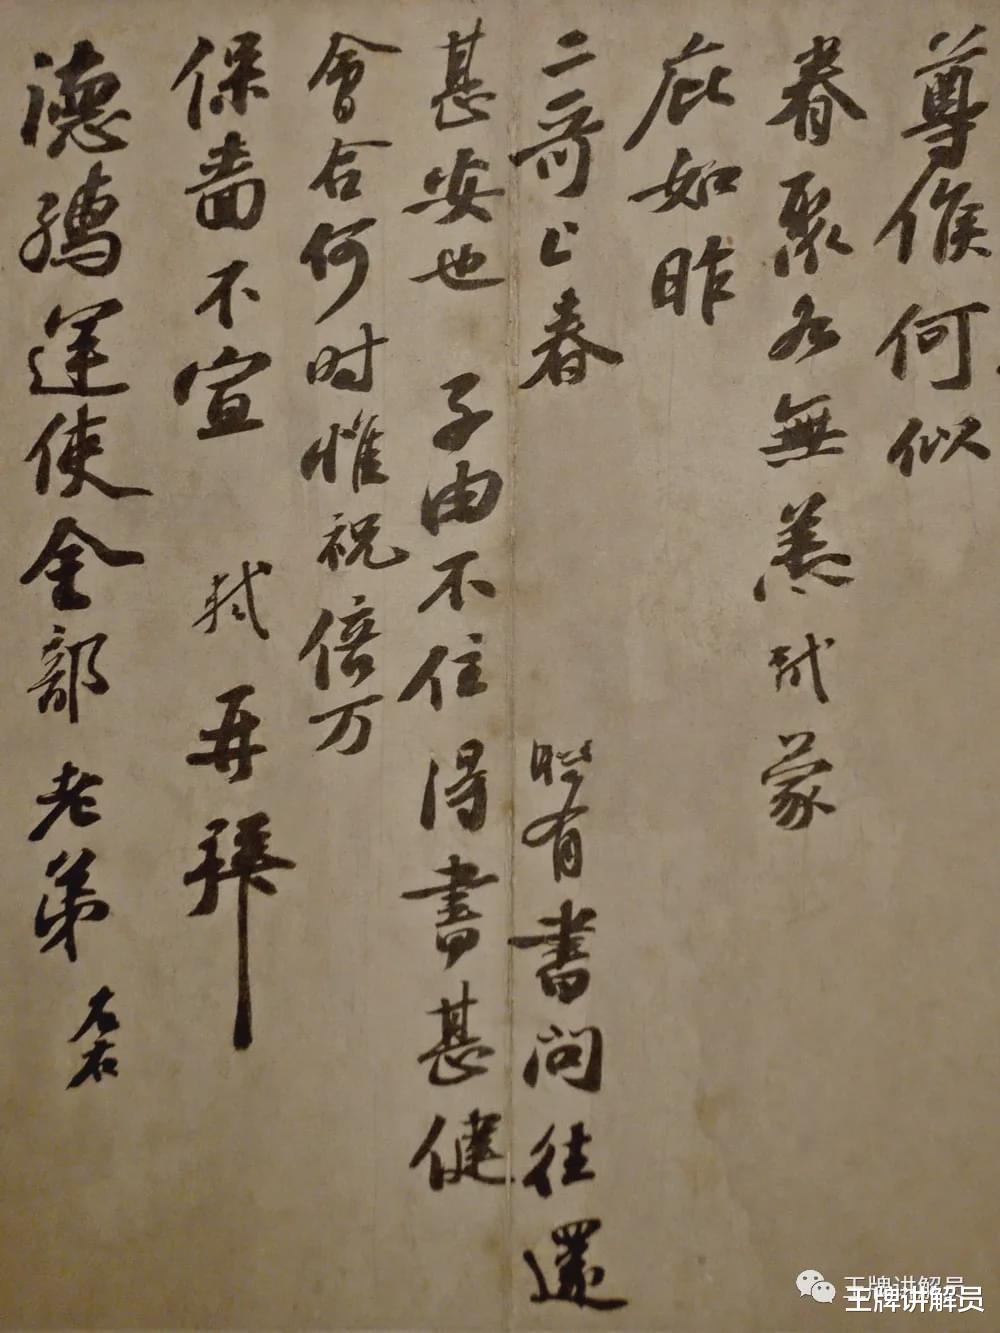 尊候何似
眷聚各無恙軾蒙
庇如昨
二哥上春 時有書問往還
甚安也 子由不住得書甚健
會合何時惟祝倍万
保嗇不宣 軾再拜
德孺運使金部老弟左右
王牌讲解员
王牌讲解员